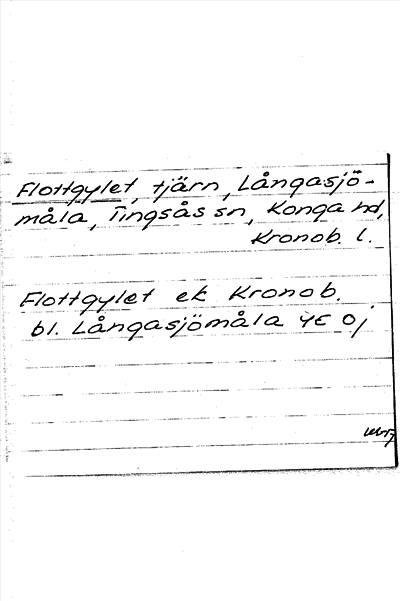 Flottgylet, tjärn, Långasjö-
måla, Tingsås sn, Konga hd,
Kronob. l.
Flottgylet ek Kronob.
bl. Långasjömåla 4E 0j